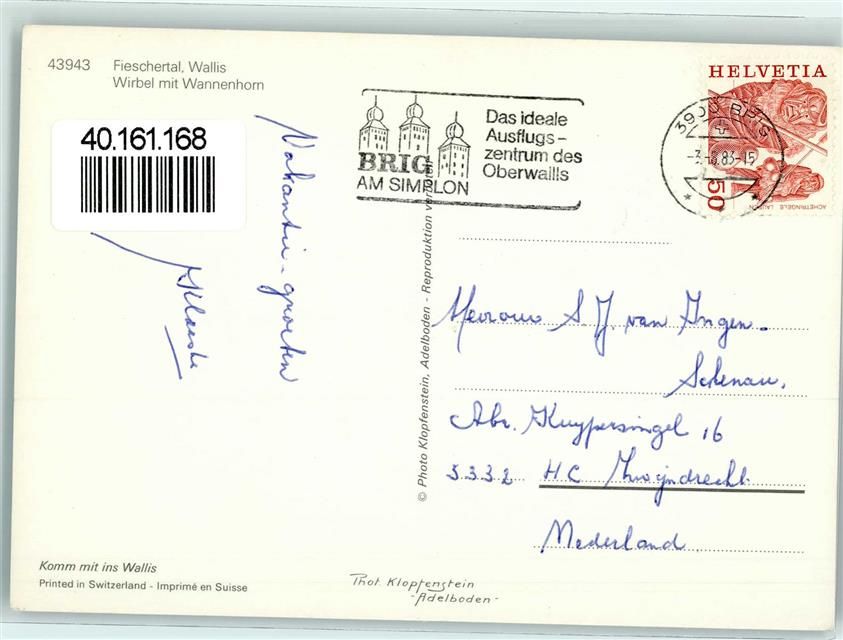 43943 Fieschertal, Wallis
Wirbel mit Wannenhorn
40.161.168
Vakantie-groeten
BRIG
AM SIMPLON
Das ideale
Ausflugs-
zentrum des
Oberwallis
HELVETIA
50
ACHETRINGELE LAUPEN
3900 BRIG
83-15
© Photo Klopfenstein, Adelboden - Reproduktion verboten
Mevrouw S J. van Ingen-
Schenau,
Abr. Kuypersingel 16
3332 HC Zwijndrecht
Nederland
Komm mit ins Wallis
Printed in Switzerland - Imprimé en Suisse
Phot. Klopfenstein
-Adelboden-